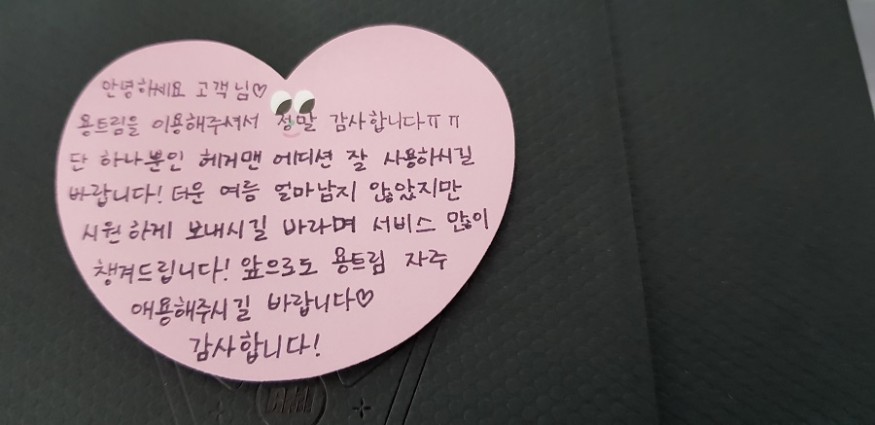 안녕하세요 고객님♡
용트림을 이용해주셔서 정말 감사합니다ㅠㅠ
단 하나뿐인 헤거맨 에디션 잘 사용하시길
바랍니다! 더운 여름 얼마남지 않았지만
시원하게 보내시길 바라며 서비스 많이
챙겨드립니다! 앞으로도 용트림 자주
애용해주시길 바랍니다♡
감사합니다!